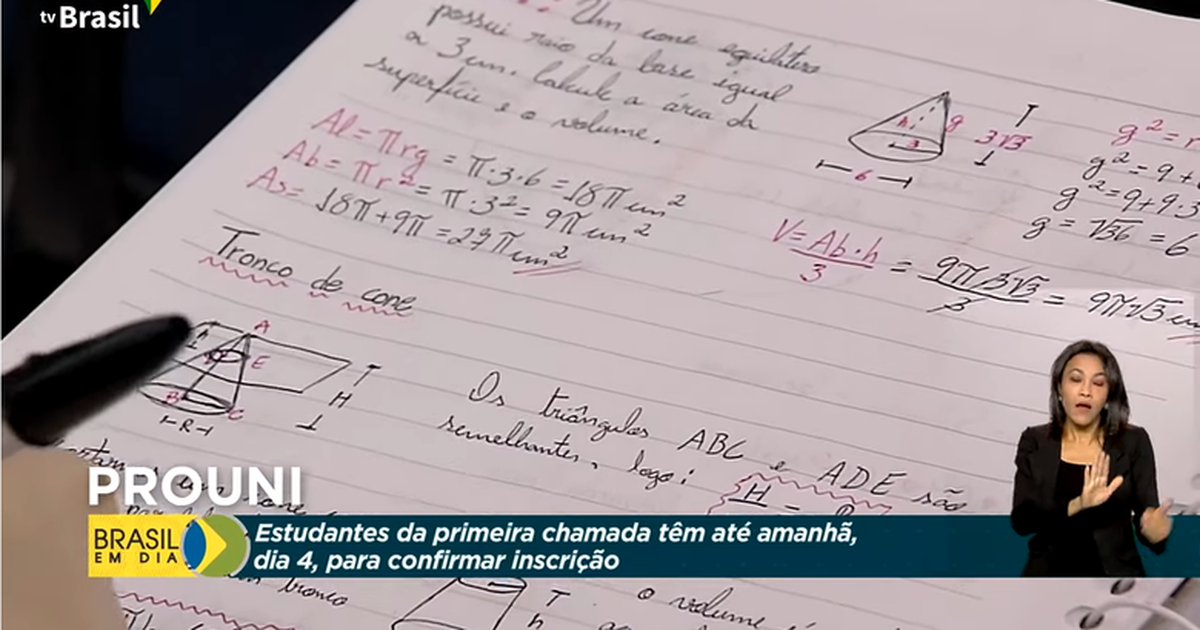 tv Brasil
Um cone equilátero
possui raio da base igual
a 3 cm. Calcule a área da
superfície e o volume.
Al = πrg = π·3·6 = 18π cm²
Ab = πr² = π·3² = 9π cm²
As = 18π + 9π = 27π cm²
h g
3
3√3
6
g² = r
g² = 9 +
g² = 9 + 9·3
g = √36 = 6
V = Ab·h / 3 = 9π·3√3 / 3 = 9π√3 cm
Tronco de cone
A
E
B
C
R
H
Os triângulos ABC e ADE são
semelhantes, logo:
H
=
PROUNI
BRASIL
EM DIA
Estudantes da primeira chamada têm até amanhã,
dia 4, para confirmar inscrição
tronco
h
o volume